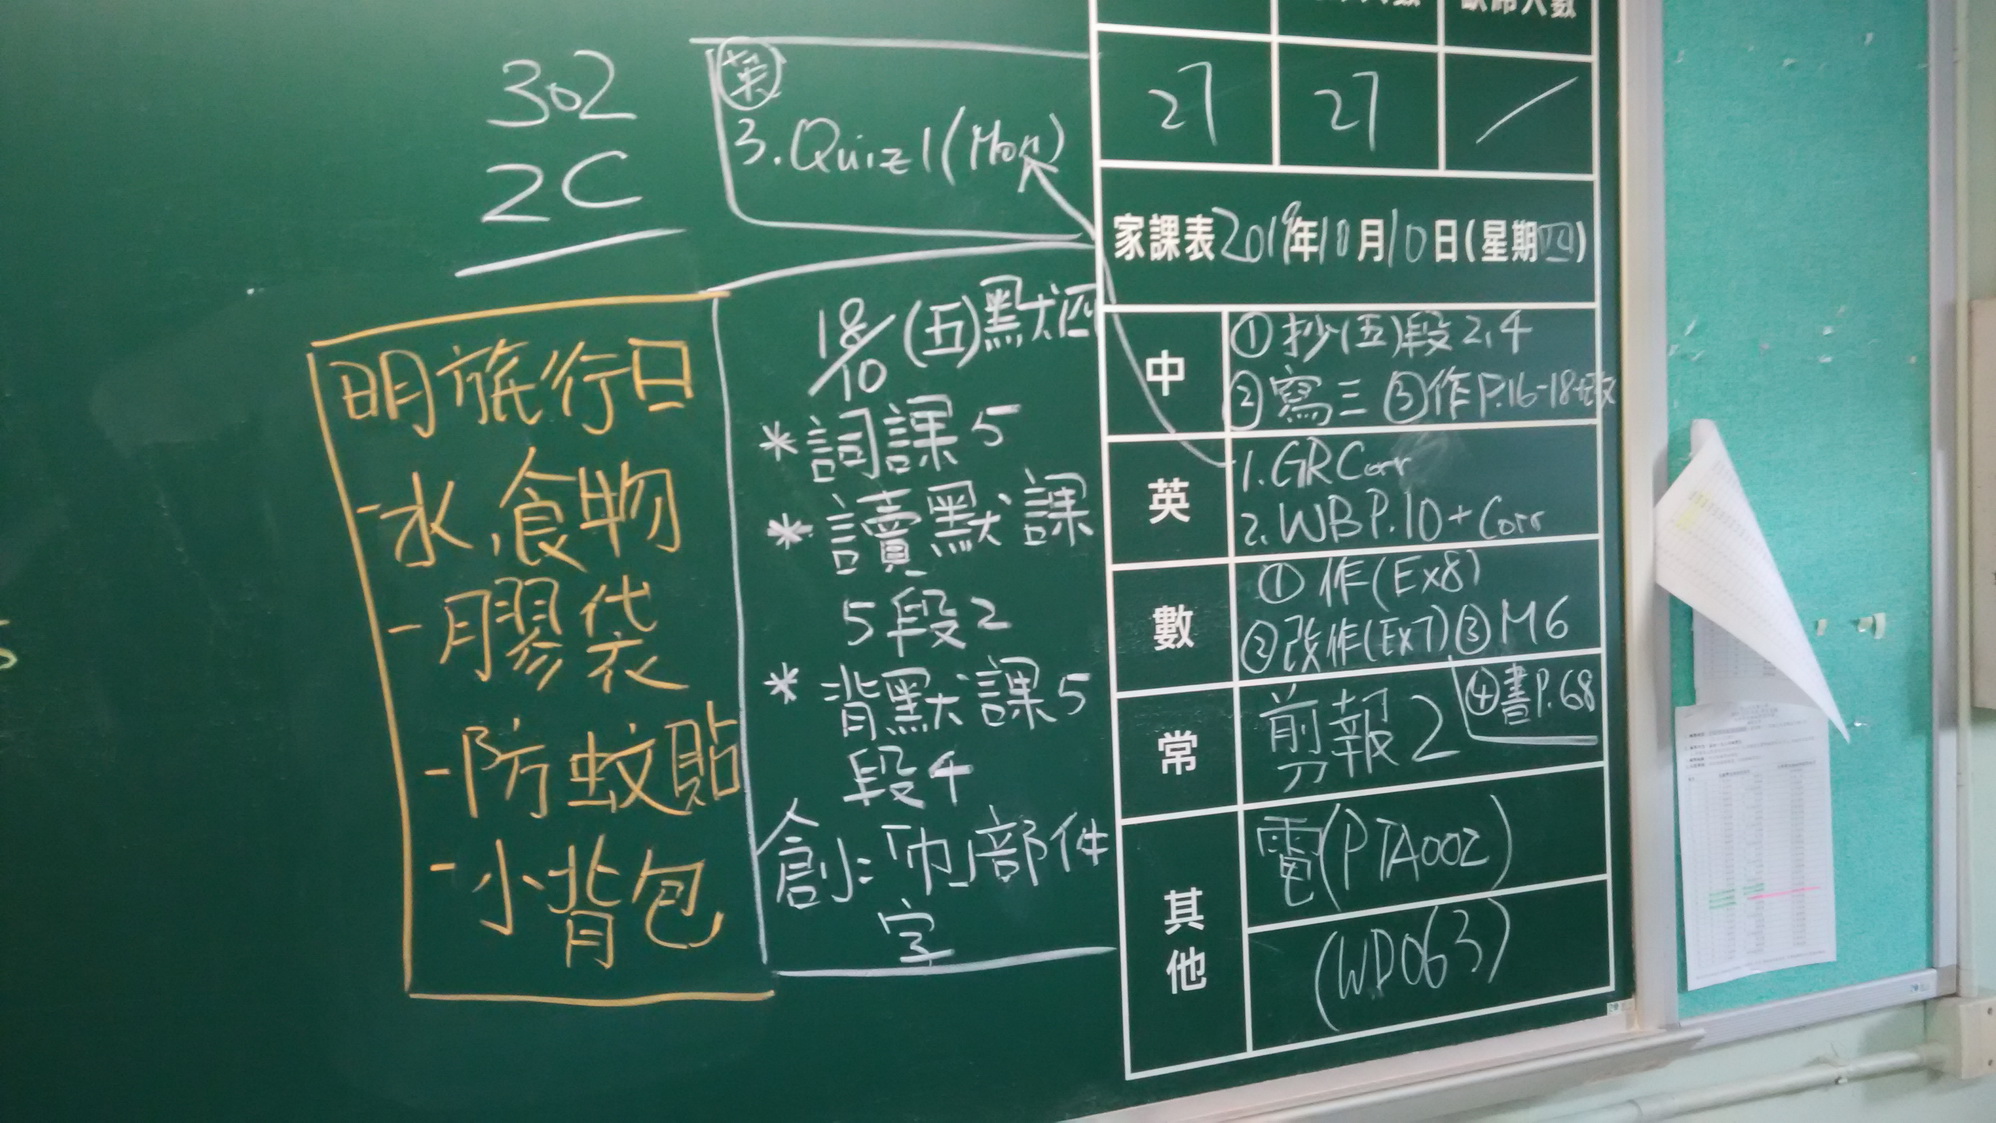 302
2C
英
3. Quiz 1 (Mon)
27 27 /
家課表2019年10月10日(星期四)
中
①抄(五)段2,4
②寫三 ③作P.16-18
英
1. GR Corr
2. WB P.10 + Corr
數
①作(Ex8)
②改作(Ex7) ③M6
④書P.68
常
剪報2
其他
電(PTA002)
(WP063)
18/10 (五)默四
*詞課5
*讀默課
5段2
*背默課5
段4
創:「巾」部件
字
明旅行日
-水,食物
-膠袋
-防蚊貼
-小背包